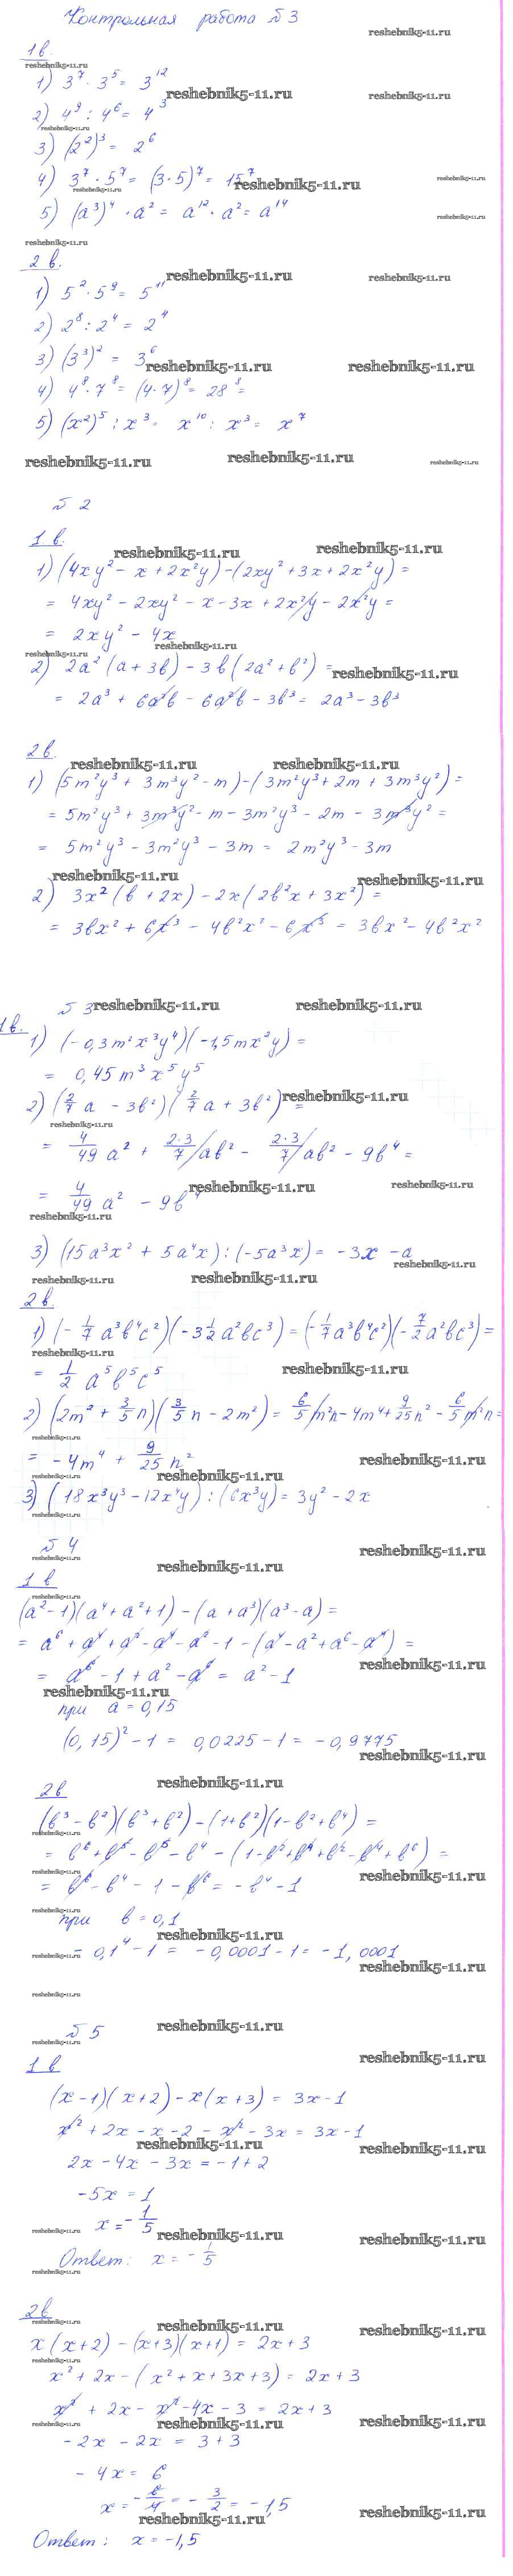 Контрольная работа №3
1в.
1) 3⁷ · 3⁵ = 3¹²
2) 4⁹ : 4⁶ = 4³
3) (2²)³ = 2⁶
4) 3⁷ · 5⁷ = (3·5)⁷ = 15⁷
5) (a³)⁴ · a² = a¹² · a² = a¹⁴
2в.
1) 5² · 5⁹ = 5¹¹
2) 2⁸ : 2⁴ = 2⁴
3) (3³)² = 3⁶
4) 4⁸ · 7⁸ = (4·7)⁸ = 28⁸ =
5) (x²)⁵ : x³ = x¹⁰ : x³ = x⁷
reshebnik5-11.ru
№ 2
1.в.
1) (4xy² - x + 2x²y) - (2xy² + 3x + 2x²y) =
= 4xy² - 2xy² - x - 3x + 2x²y - 2x²y =
= 2xy² - 4x
2) 2a² (a + 3в) - 3в (2a² + в²) =
= 2a³ + 6a²в - 6a²в - 3в³ = 2a³ - 3в³
2в.
1) (5m²y³ + 3m³y² - m) - (3m²y³ + 2m + 3m³y²) =
= 5m²y³ + 3m³y² - m - 3m²y³ - 2m - 3m³y² =
= 5m²y³ - 3m²y³ - 3m = 2m²y³ - 3m
2) 3x² (в + 2x) - 2x (2в²x + 3x²) =
= 3вx² + 6x³ - 4в²x² - 6x³ = 3вx² - 4в²x²
№ 3
1в.
1) (-0,3m²x³y⁴)(-1,5mx²y) =
= 0,45m³x⁵y⁵
2) (2/7 a - 3в²)(2/7 a + 3в²) =
= 4/49 a² + 2·3/7 aв² - 2·3/7 aв² - 9в⁴ =
= 4/49 a² - 9в⁴
3) (15a³x² + 5a⁴x) : (-5a³x) = -3x - a
2в.
1) (-1/7 a³в⁴c²)(-3 1/2 a²вc³) = (-1/7 a³в⁴c²)(-7/2 a²вc³) =
= 1/2 a⁵в⁵c⁵
2) (2m² + 3/5 n)(3/5 n - 2m²) = 6/5 m²n - 4m⁴ + 9/25 n² - 6/5 m²n =
= -4m⁴ + 9/25 n²
3) (18x³y³ - 12x⁴y) : (6x³y) = 3y² - 2x
№ 4
1 в
(a² - 1)(a⁴ + a² + 1) - (a + a³)(a³ - a) =
= a⁶ + a⁴ + a² - a⁴ - a² - 1 - (a⁴ - a² + a⁶ - a⁴) =
= a⁶ - 1 + a² - a⁶ = a² - 1
при a = 0,15
(0,15)² - 1 = 0,0225 - 1 = -0,9775
2в
(в³ - в²)(в³ + в²) - (1 + в²)(1 - в² + в⁴) =
= в⁶ + в⁵ - в⁵ - в⁴ - (1 - в² + в⁴ + в² - в⁴ + в⁶) =
= в⁶ - в⁴ - 1 - в⁶ = -в⁴ - 1
при в = 0,1
- 0,1⁴ - 1 = -0,0001 - 1 = -1,0001
№ 5
1 в
(x - 1)(x + 2) - x(x + 3) = 3x - 1
x² + 2x - x - 2 - x² - 3x = 3x - 1
2x - 4x - 3x = -1 + 2
-5x = 1
x = -1/5
Ответ: x = -1/5
2в
x (x + 2) - (x + 3)(x + 1) = 2x + 3
x² + 2x - (x² + x + 3x + 3) = 2x + 3
x² + 2x - x² - 4x - 3 = 2x + 3
-2x - 2x = 3 + 3
-4x = 6
x = -6/4 = -3/2 = -1,5
Ответ: x = -1,5